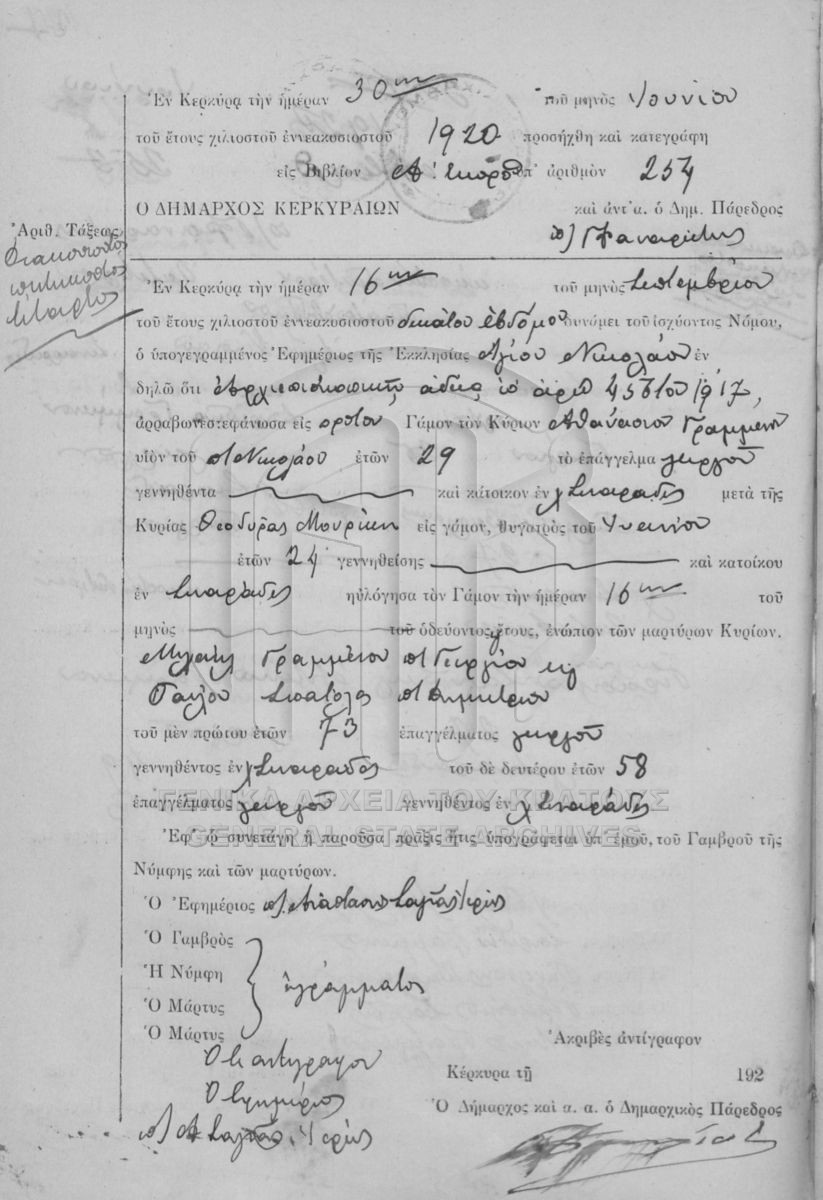 Ἐν Κερκύρᾳ τὴν ἡμέραν 30ην τοῦ μηνὸς Ἰουνίου
τοῦ ἔτους χιλιοστοῦ ἐννεακοσιοστοῦ 1920 προσήχθη καὶ κατεγράφη
εἰς Βιβλίον ὑπ' ἀριθμὸν 254
Ο ΔΗΜΑΡΧΟΣ ΚΕΡΚΥΡΑΙΩΝ καὶ ἀντ' α. ὁ Δημ. Πάρεδρος
Ἀριθ. Τάξεως
Διακόσια
πεντήκοντα
τέταρτος
Ἐν Κερκύρᾳ τὴν ἡμέραν 16ην τοῦ μηνὸς Σεπτεμβρίου
τοῦ ἔτους χιλιοστοῦ ἐννεακοσιοστοῦ δεκάτου ἑβδόμου δυνάμει τοῦ ἰσχύοντος Νόμου,
ὁ ὑπογεγραμμένος Ἐφημέριος τῆς Ἐκκλησίας Ἁγίου Νικολάου ἐν
δηλῶ ὅτι ἀρχιεπισκοπικῆς ἀδείας ὑπ' ἀριθ 1917,
ἀρραβωνεστεφάνωσα εἰς πρῶτον Γάμον τὸν Κύριον Ἀθανάσιον Γραμμένον
υἱὸν τοῦ π Νικολάου ἐτῶν 29 τὸ ἐπάγγελμα γεωργοῦ
γεννηθέντα καὶ κάτοικον ἐν Σιναράδες μετὰ τῆς
Κυρίας Θεοδώρας Μουρίκη εἰς γάμον, θυγατρὸς τοῦ Ἰωάννου
ἐτῶν 24 γεννηθείσης καὶ κατοίκου
ἐν Σιναράδες ηὐλόγησα τὸν Γάμον τὴν ἡμέραν 16ην τοῦ
μηνὸς τοῦ ὁδεύοντος ἔτους, ἐνώπιον τῶν μαρτύρων Κυρίων.
Μιχαὴλ Γραμμένου π Γεωργίου καὶ
Παύλου π Δημητρίου
τοῦ μὲν πρώτου ἐτῶν 73 ἐπαγγέλματος γεωργοῦ
γεννηθέντος ἐν Σιναράδες τοῦ δὲ δευτέρου ἐτῶν 58
ἐπαγγέλματος γεωργοῦ γεννηθέντος ἐν Σιναράδες
ΓΕΝΙΚΑ ΑΡΧΕΙΑ ΤΟΥ ΚΡΑΤΟΥΣ
GENERAL STATE ARCHIVES
Ἐφ' ᾧ συνετάγη ἡ παροῦσα πρᾶξις ἥτις ὑπογράφεται ὑπ' ἐμοῦ, τοῦ Γαμβροῦ τῆς
Νύμφης καὶ τῶν μαρτύρων.
Ὁ Ἐφημέριος Ἱερεὺς
Ὁ Γαμβρὸς
Ἡ Νύμφη ἀγράμματοι
Ὁ Μάρτυς
Ὁ Μάρτυς
Ἀκριβὲς ἀντίγραφον
Ὁ ἀντιγράφων
Κέρκυρα τῇ 192
Ὁ Ἐφημέριος
Ὁ Δήμαρχος καὶ α. α. ὁ Δημαρχικὸς Πάρεδρος
Ἱερεὺς